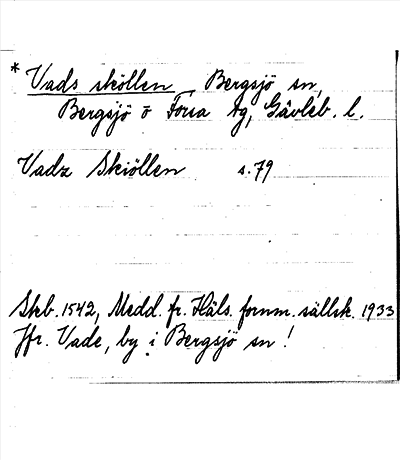 * Vads sköllen Bergsjö sn,
Bergsjö o Forsa tg, Gävleb. l.
Vadz Skiöllen s. 79
Skb. 1542, Medd. fr. Häls. fornm. sällsk. 1933
Jfr. Vade, by i Bergsjö sn!